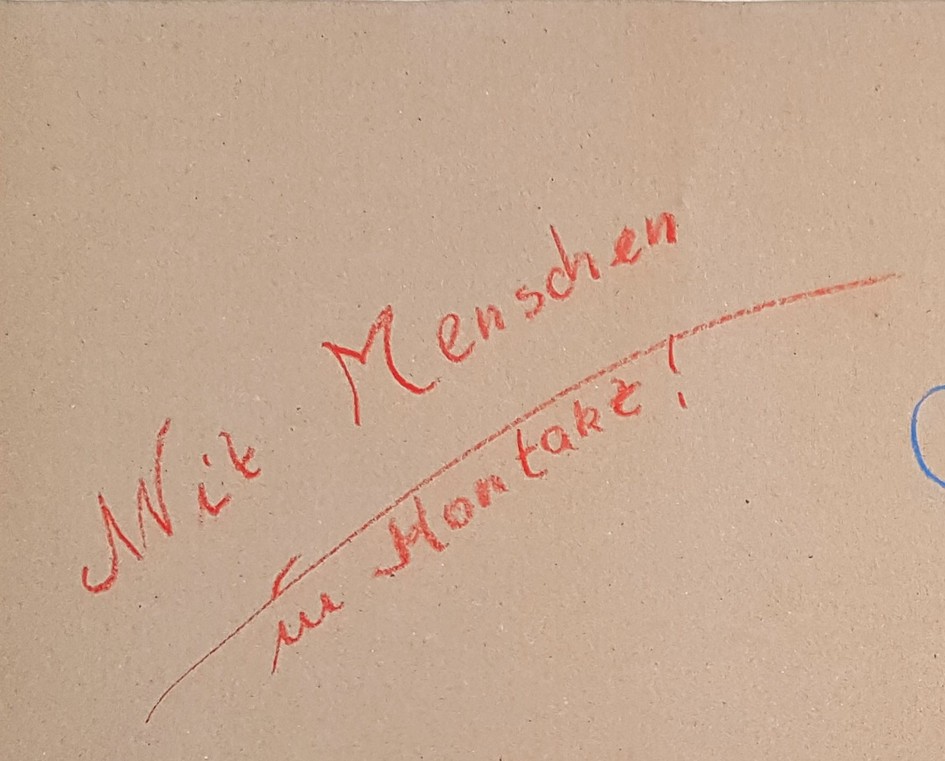 Mit Menschen
in Kontakt!